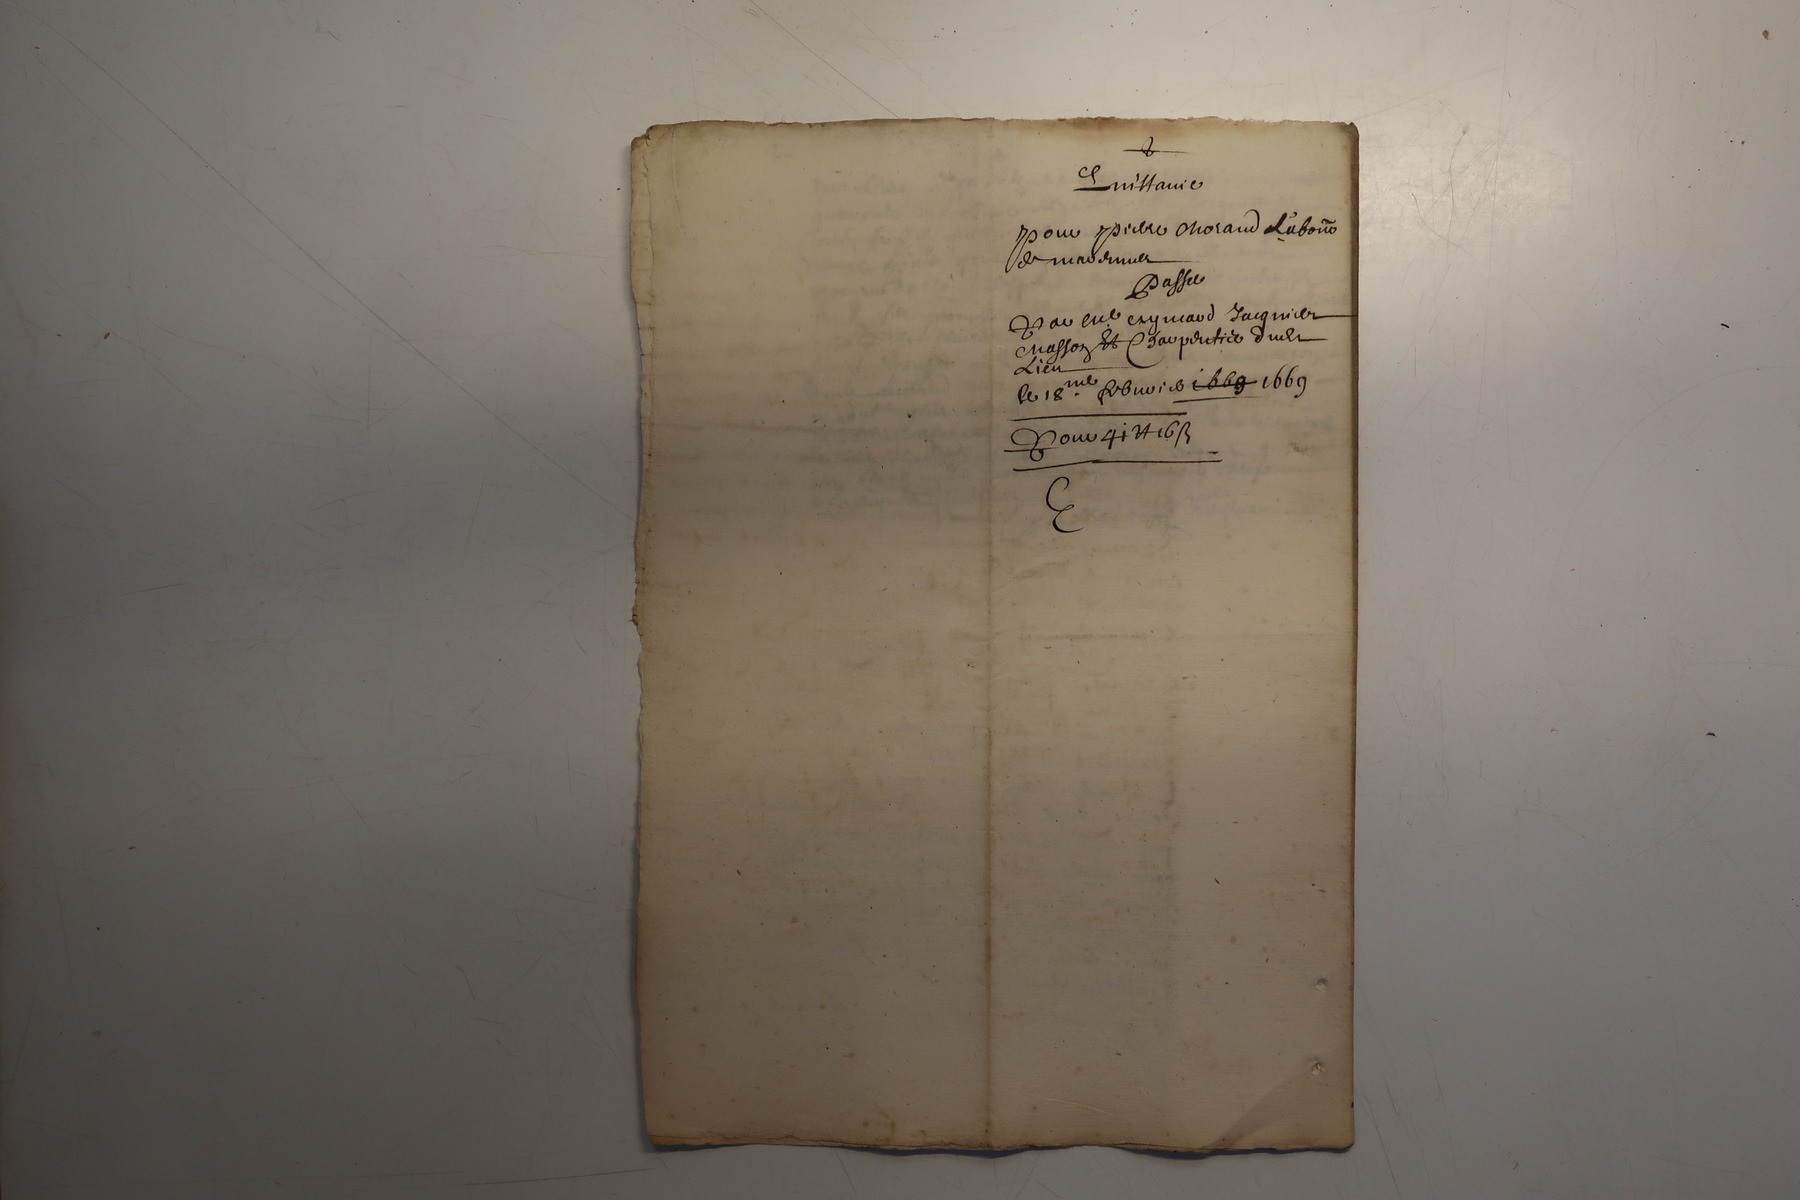 Quittance
pour pierre Morand Labouro
de
Passée
Par Eymard Jacquier
Masson et Charpentier dud
Lieu
le 18me febvrier 1669 1669
Pour 41 tt 16 ß